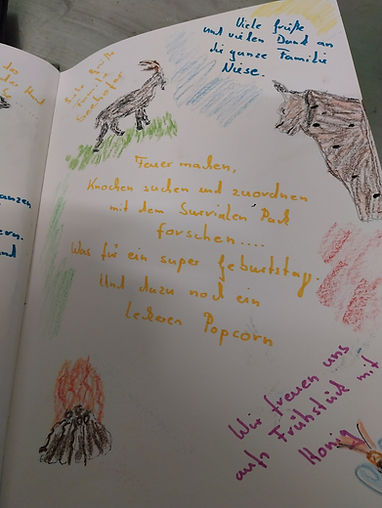 Viele Grüße
und vielen Dank an
die ganze Familie
Niese.
Feuer machen,
Knochen suchen und zuordnen
mit dem Survialen Pack
forschen....
Was für ein super Geburtstag.
Und dazu noch ein
leckeren Popcorn
Wir freuen uns
aufs Frühstück mit
Honig